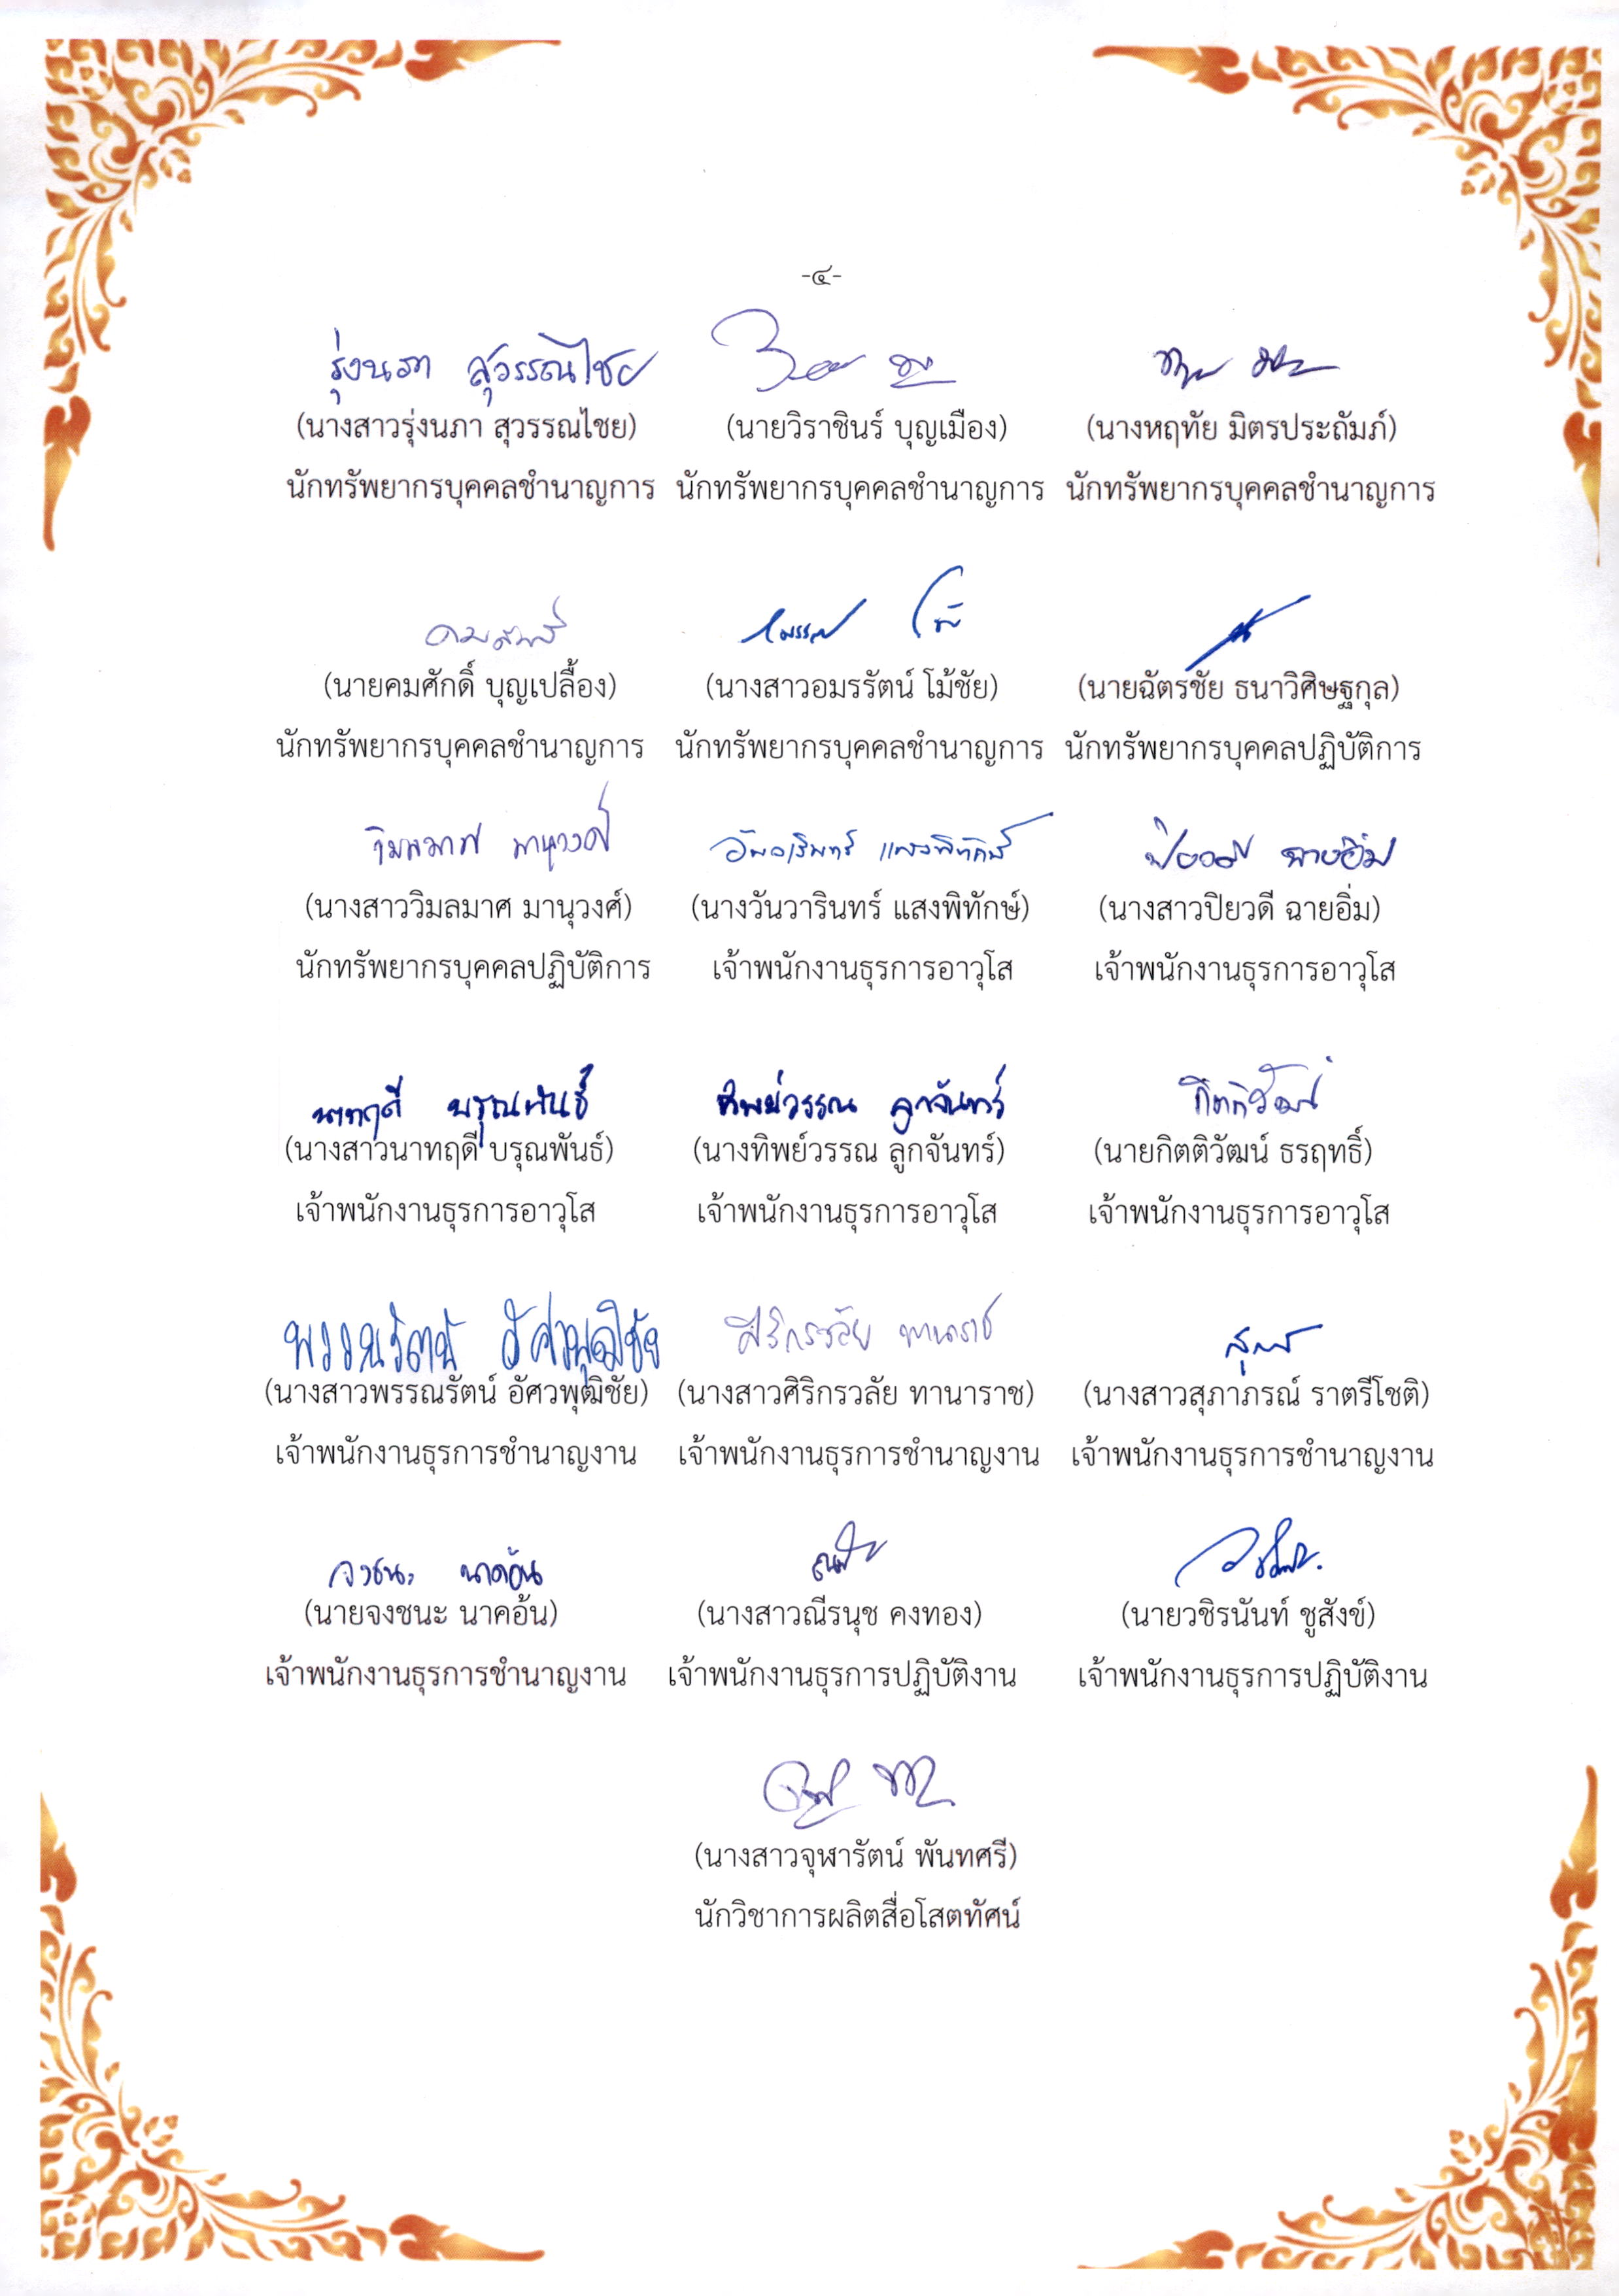 -๔-
รุ่งนภา สุวรรณไชย
(นางสาวรุ่งนภา สุวรรณไชย) (นายวิราชินร์ บุญเมือง) (นางหฤทัย มิตรประถัมภ์)
นักทรัพยากรบุคคลชำนาญการ นักทรัพยากรบุคคลชำนาญการ นักทรัพยากรบุคคลชำนาญการ
คมศักดิ์
(นายคมศักดิ์ บุญเปลื้อง) (นางสาวอมรรัตน์ โม้ชัย) (นายฉัตรชัย ธนาวิศิษฐกุล)
นักทรัพยากรบุคคลชำนาญการ นักทรัพยากรบุคคลชำนาญการ นักทรัพยากรบุคคลปฏิบัติการ
วิมลมาศ มานุวงศ์ วันวารินทร์ แสงพิทักษ์ ปิยวดี ฉายอิ่ม
(นางสาววิมลมาศ มานุวงศ์) (นางวันวารินทร์ แสงพิทักษ์) (นางสาวปิยวดี ฉายอิ่ม)
นักทรัพยากรบุคคลปฏิบัติการ เจ้าพนักงานธุรการอาวุโส เจ้าพนักงานธุรการอาวุโส
นาทฤดี บรุณพันธ์ ทิพย์วรรณ ลูกจันทร์ กิตติวัฒน์
(นางสาวนาทฤดี บรุณพันธ์) (นางทิพย์วรรณ ลูกจันทร์) (นายกิตติวัฒน์ ธรฤทธิ์)
เจ้าพนักงานธุรการอาวุโส เจ้าพนักงานธุรการอาวุโส เจ้าพนักงานธุรการอาวุโส
พรรณรัตน์ อัศวพุฒิชัย ศิริกรวลัย ทานาราช
(นางสาวพรรณรัตน์ อัศวพุฒิชัย) (นางสาวศิริกรวลัย ทานาราช) (นางสาวสุภาภรณ์ ราตรีโชติ)
เจ้าพนักงานธุรการชำนาญงาน เจ้าพนักงานธุรการชำนาญงาน เจ้าพนักงานธุรการชำนาญงาน
จงชนะ นาคอ้น
(นายจงชนะ นาคอ้น) (นางสาวณีรนุช คงทอง) (นายวชิรนันท์ ชูสังข์)
เจ้าพนักงานธุรการชำนาญงาน เจ้าพนักงานธุรการปฏิบัติงาน เจ้าพนักงานธุรการปฏิบัติงาน
(นางสาวจุฬารัตน์ พันทศรี)
นักวิชาการผลิตสื่อโสตทัศน์